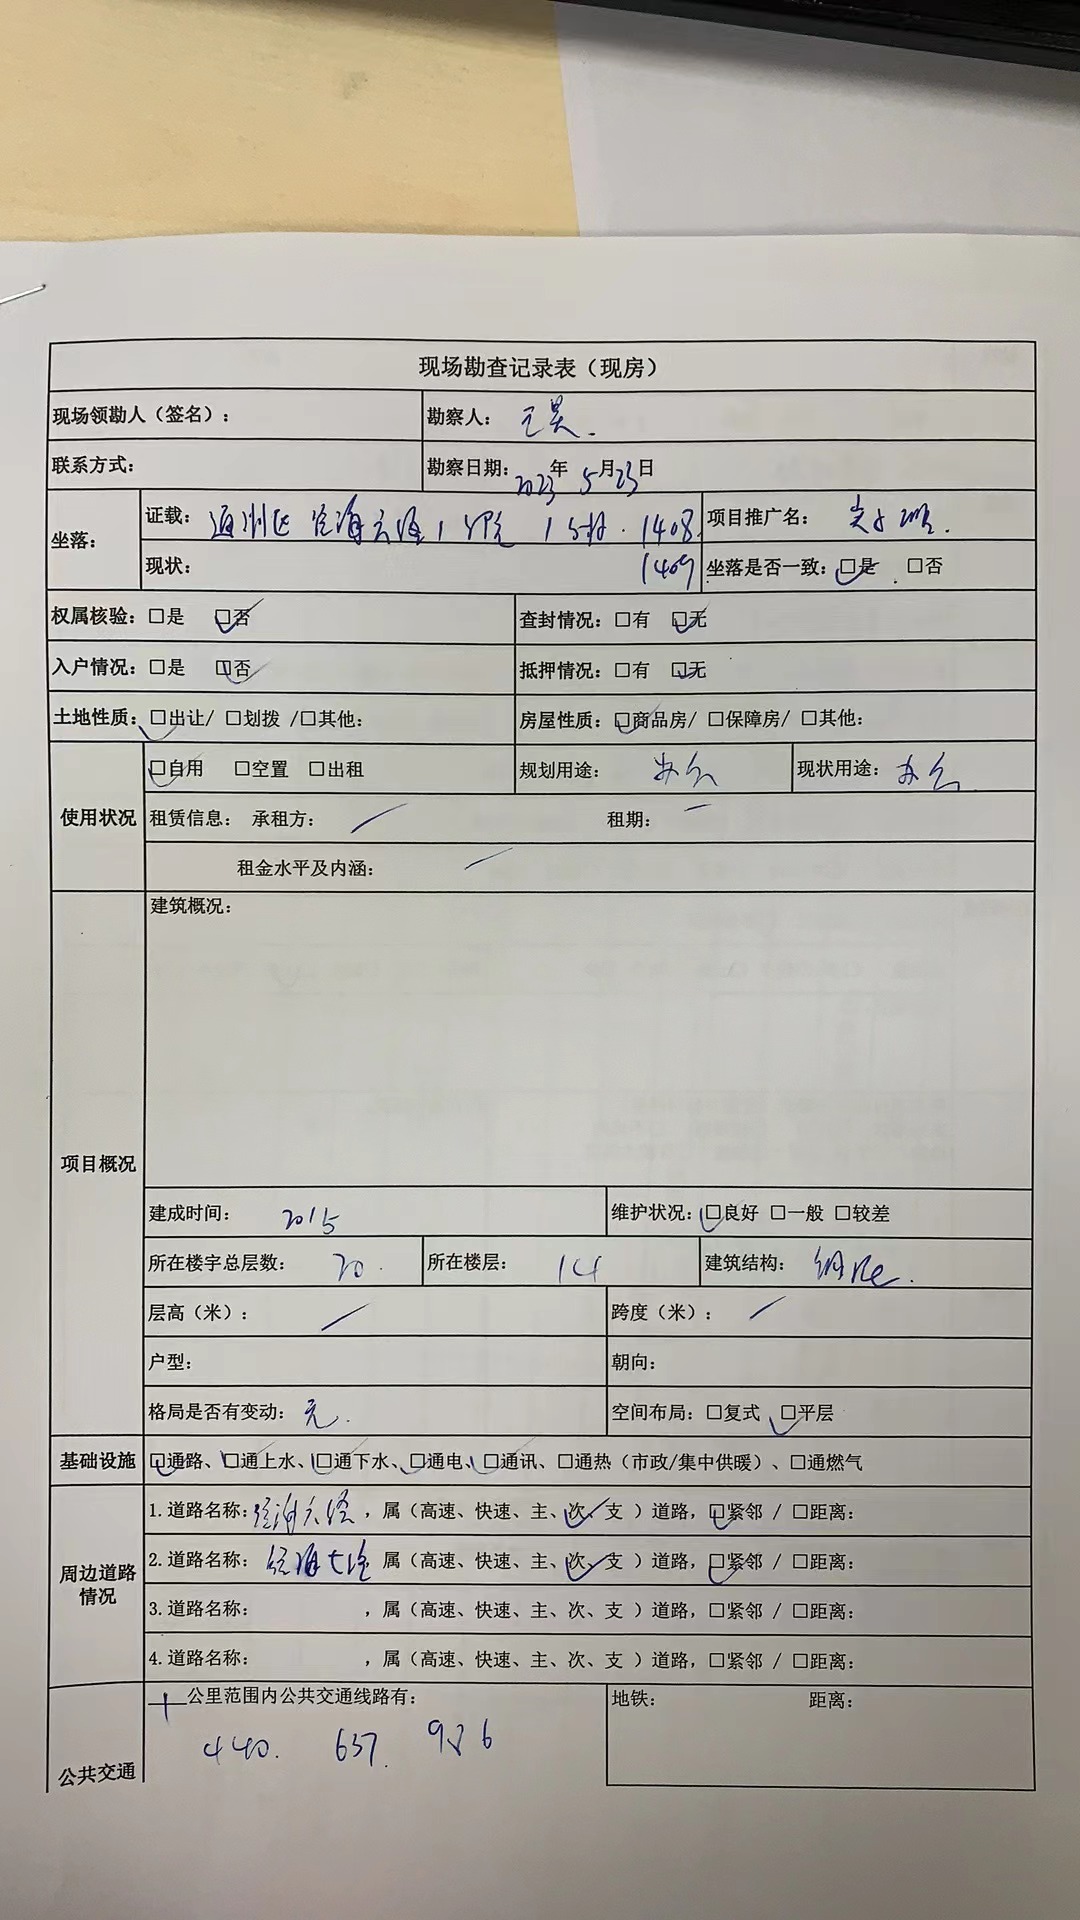 现场勘查记录表（现房）
现场领勘人（签名）： 勘察人：王昊.
联系方式： 勘察日期：2023年5月23日
坐落： 证载：通州区经海六路1号院1号楼.1408 项目推广名：
现状： 1409 坐落是否一致：☑是 □否
权属核验：□是 ☑否 查封情况：□有 ☑无
入户情况：□是 ☑否 抵押情况：□有 ☑无
土地性质：☑出让/ □划拨 /□其他： 房屋性质：☑商品房/ □保障房/ □其他：
使用状况 ☑自用 □空置 □出租 规划用途：办公 现状用途：办公
租赁信息： 承租方：/ 租期：/
租金水平及内涵：/
项目概况 建筑概况：
建成时间：2015 维护状况：☑良好 □一般 □较差
所在楼宇总层数：20. 所在楼层：14 建筑结构：钢混.
层高（米）：/ 跨度（米）：/
户型： 朝向：
格局是否有变动：无. 空间布局：□复式 ☑平层
基础设施 ☑通路、☑通上水、☑通下水、☑通电、☑通讯、□通热（市政/集中供暖）、□通燃气
周边道路情况 1.道路名称：经海六路，属（高速、快速、主、次✓、支 ）道路，☑紧邻 / □距离：
2.道路名称：经海七路 属（高速、快速、主、次✓、支 ）道路，☑紧邻 / □距离：
3.道路名称： ，属（高速、快速、主、次、支 ）道路，□紧邻 / □距离：
4.道路名称： ，属（高速、快速、主、次、支 ）道路，□紧邻 / □距离：
公共交通 1公里范围内公共交通线路有： 地铁： 距离：
440. 637. 926